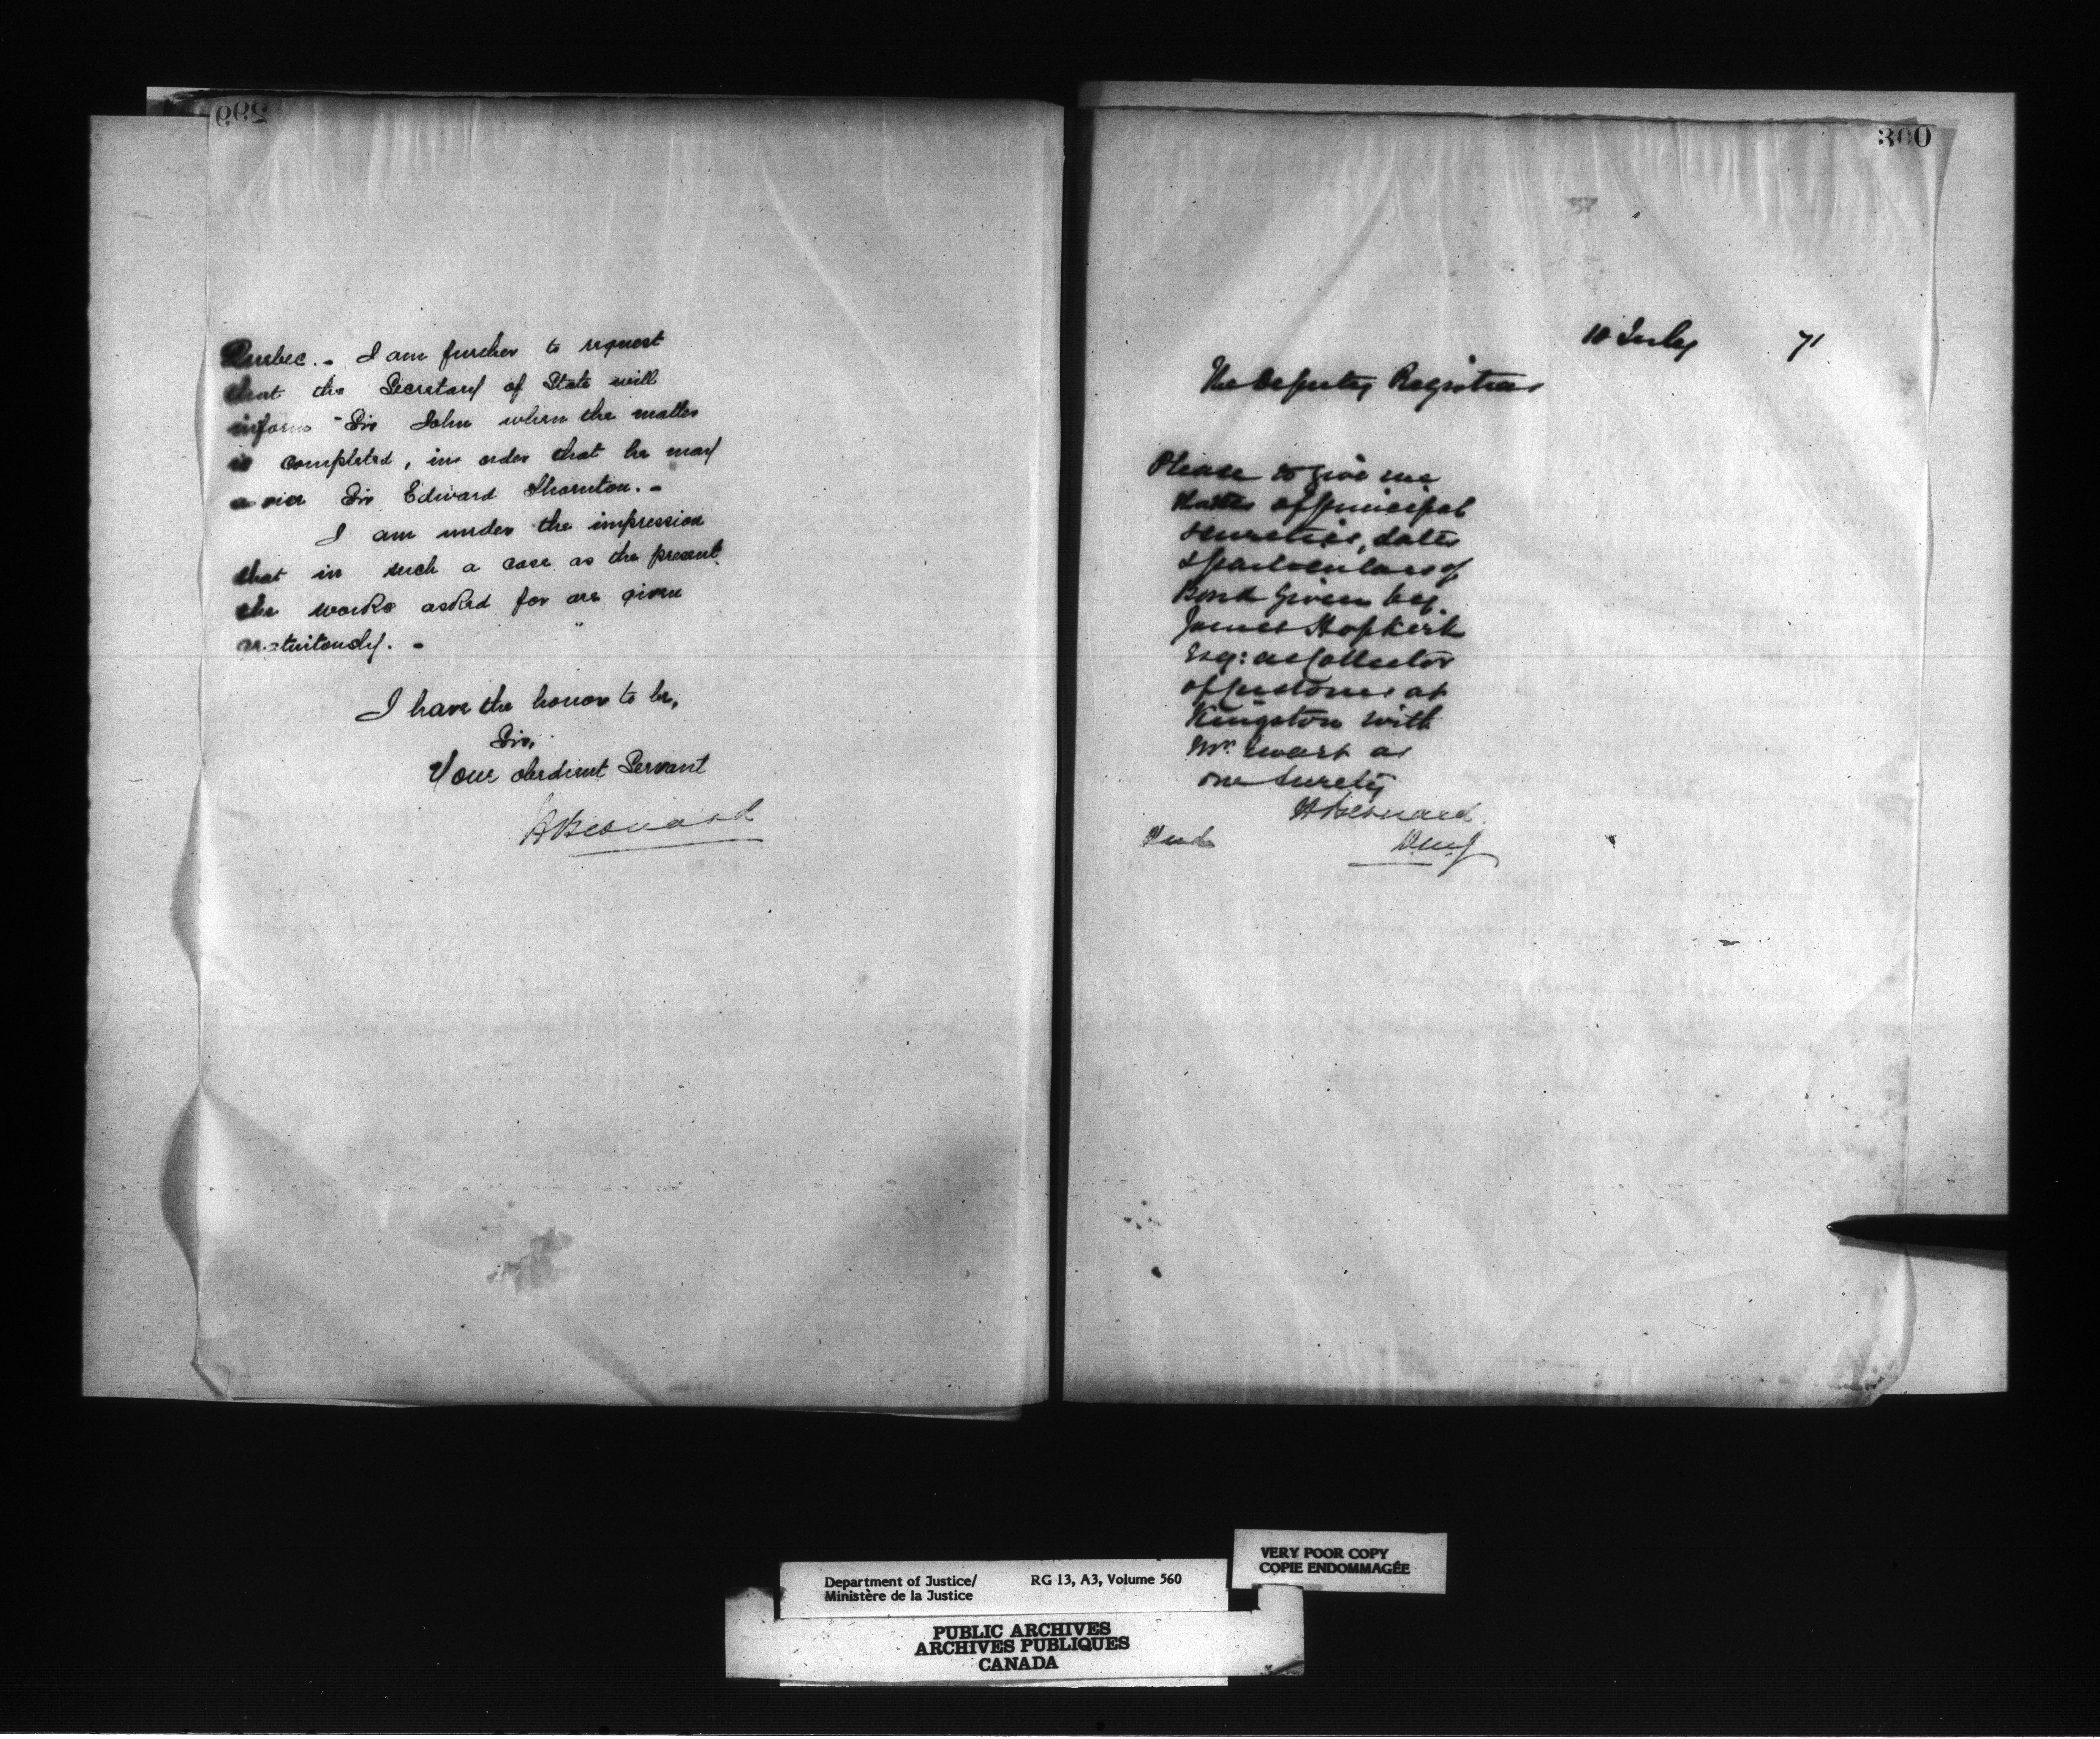 299
Quebec. - I am further to request
that the Secretary of State will
inform Sir John when the matter
is completed, in order that he may
a vise Sir Edward Thornton. -
I am under the impression
that in such a case as the present
the works asked for are given
gratuitously. -
I have the honor to be,
Sir,
Your obedient Servant
H Bernard
300
10 July 71
The Deputy Registrar
Please to give me
names of principal
sureties, dates
& particulars of
Bond given by
James Hopkirk
Esq: as Collector
of Customs at
Kingston with
Mr. Ewart as
one surety
H Bernard
D.M.J
Department of Justice/
Ministère de la Justice
RG 13, A3, Volume 560
VERY POOR COPY
COPIE ENDOMMAGÉE
PUBLIC ARCHIVES
ARCHIVES PUBLIQUES
CANADA